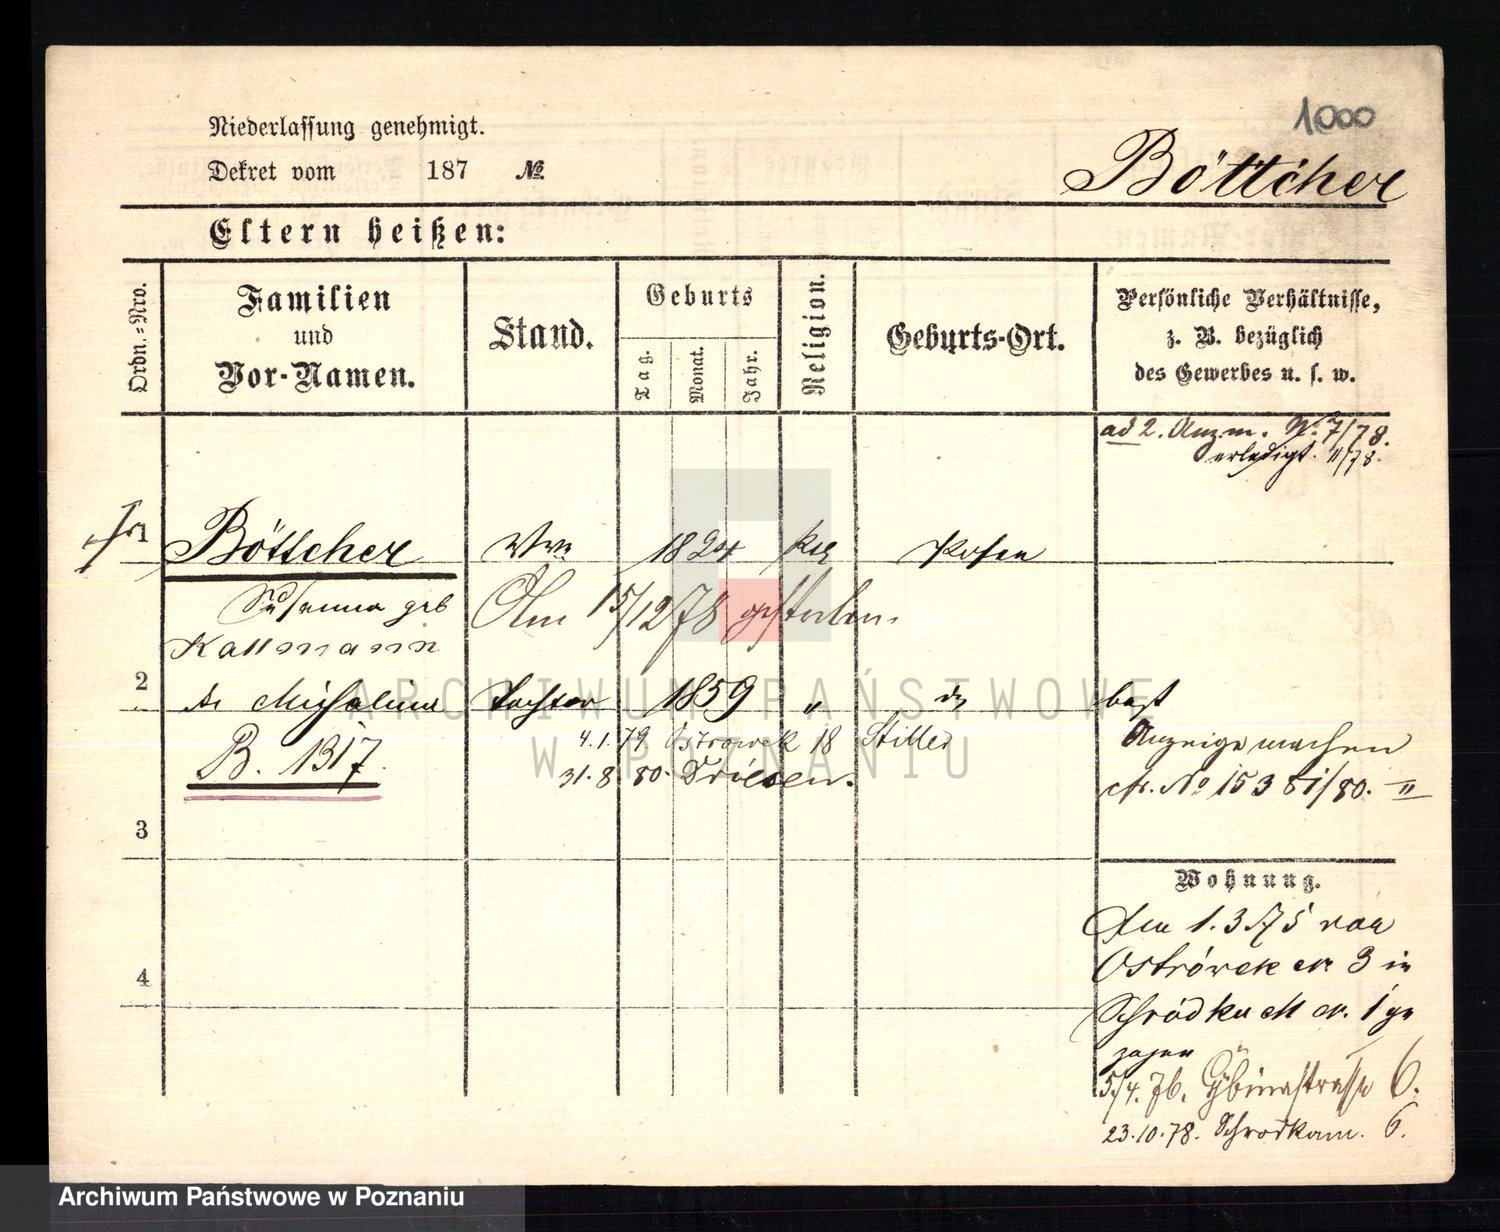 1000
Niederlassung genehmigt.
Dekret vom 187 №
Böttcher
Eltern heißen:
Ordn.-Nro.
Familien
und
Vor-Namen.
Stand.
Geburts
Tag.
Monat.
Jahr.
Religion.
Geburts-Ort.
Persönliche Verhältnisse,
z. B. bezüglich
des Gewerbes u. s. w.
ad 2. Anzm. N. 7/78.
erledigt. 11/78.
1 Böttcher Wwe 1824 Posen
Susanna geb
Kattmann
Am 15/12 78 gestorben.
2 Tochter 1859 "
B. 1317.
4.1.79 Ostrowek 18 Stiller
31.8.80. Driesen.
Anzeige machen
No 15381/80.
3
4
Wohnung.
Am 1.3 75 von
Ostrówek N 3 in
Schrodka M N. 1 ge
zogen
5/4. 76. 6.
23.10.78. Schrodkam. 6.
ARCHIWUM PAŃSTWOWE
W POZNANIU
Archiwum Państwowe w Poznaniu